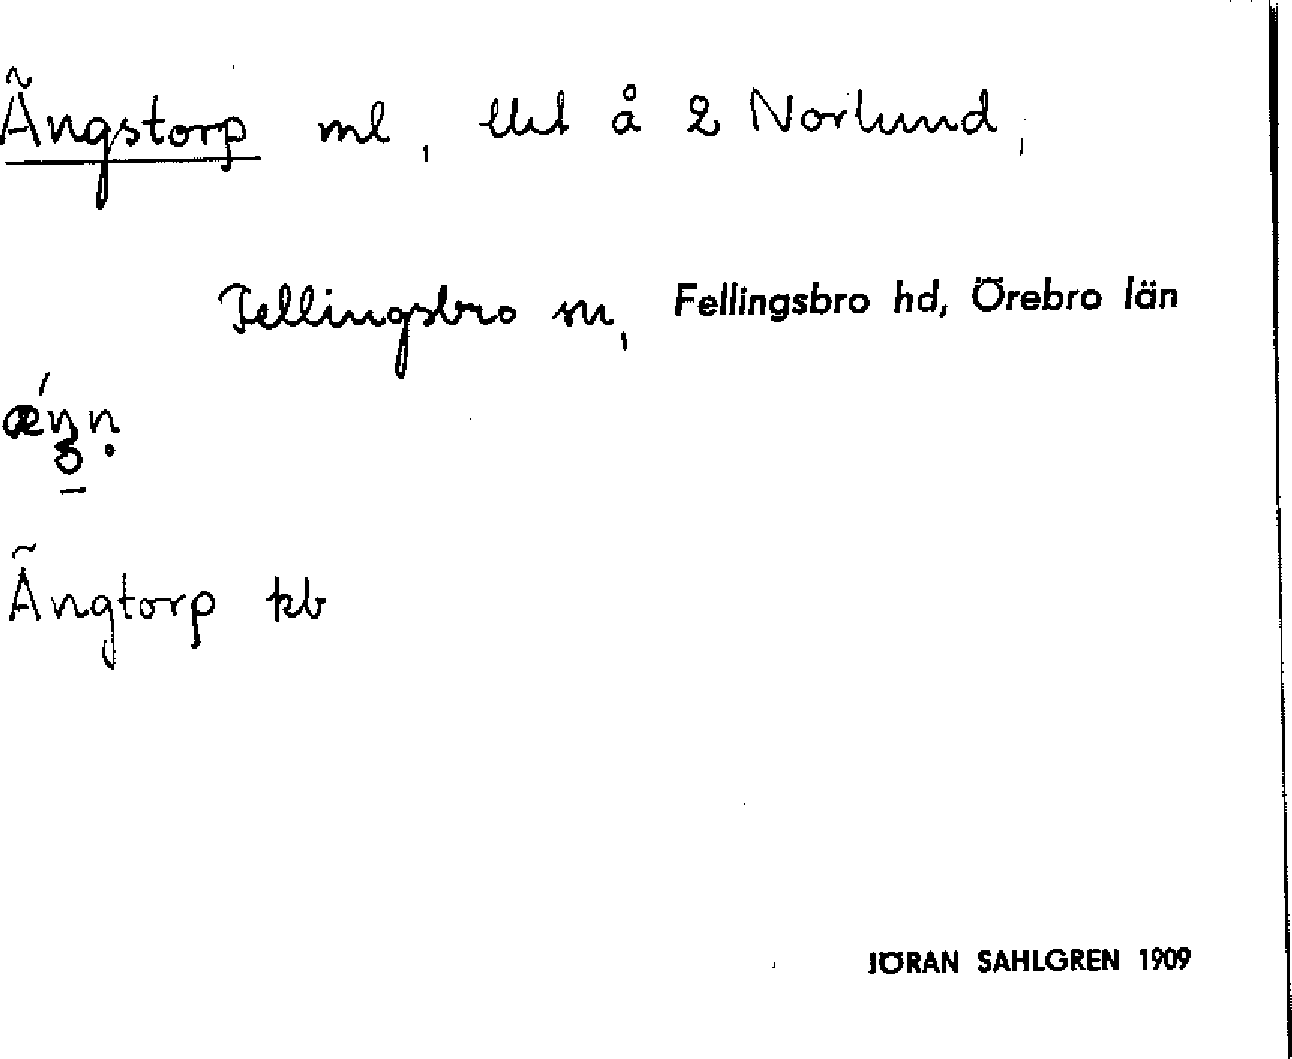 Ängstorp ml, tht å 2 Norlund,
Fellingsbro sn, Fellingsbro hd, Örebro län
Ängtorp kb
JÖRAN SAHLGREN 1909